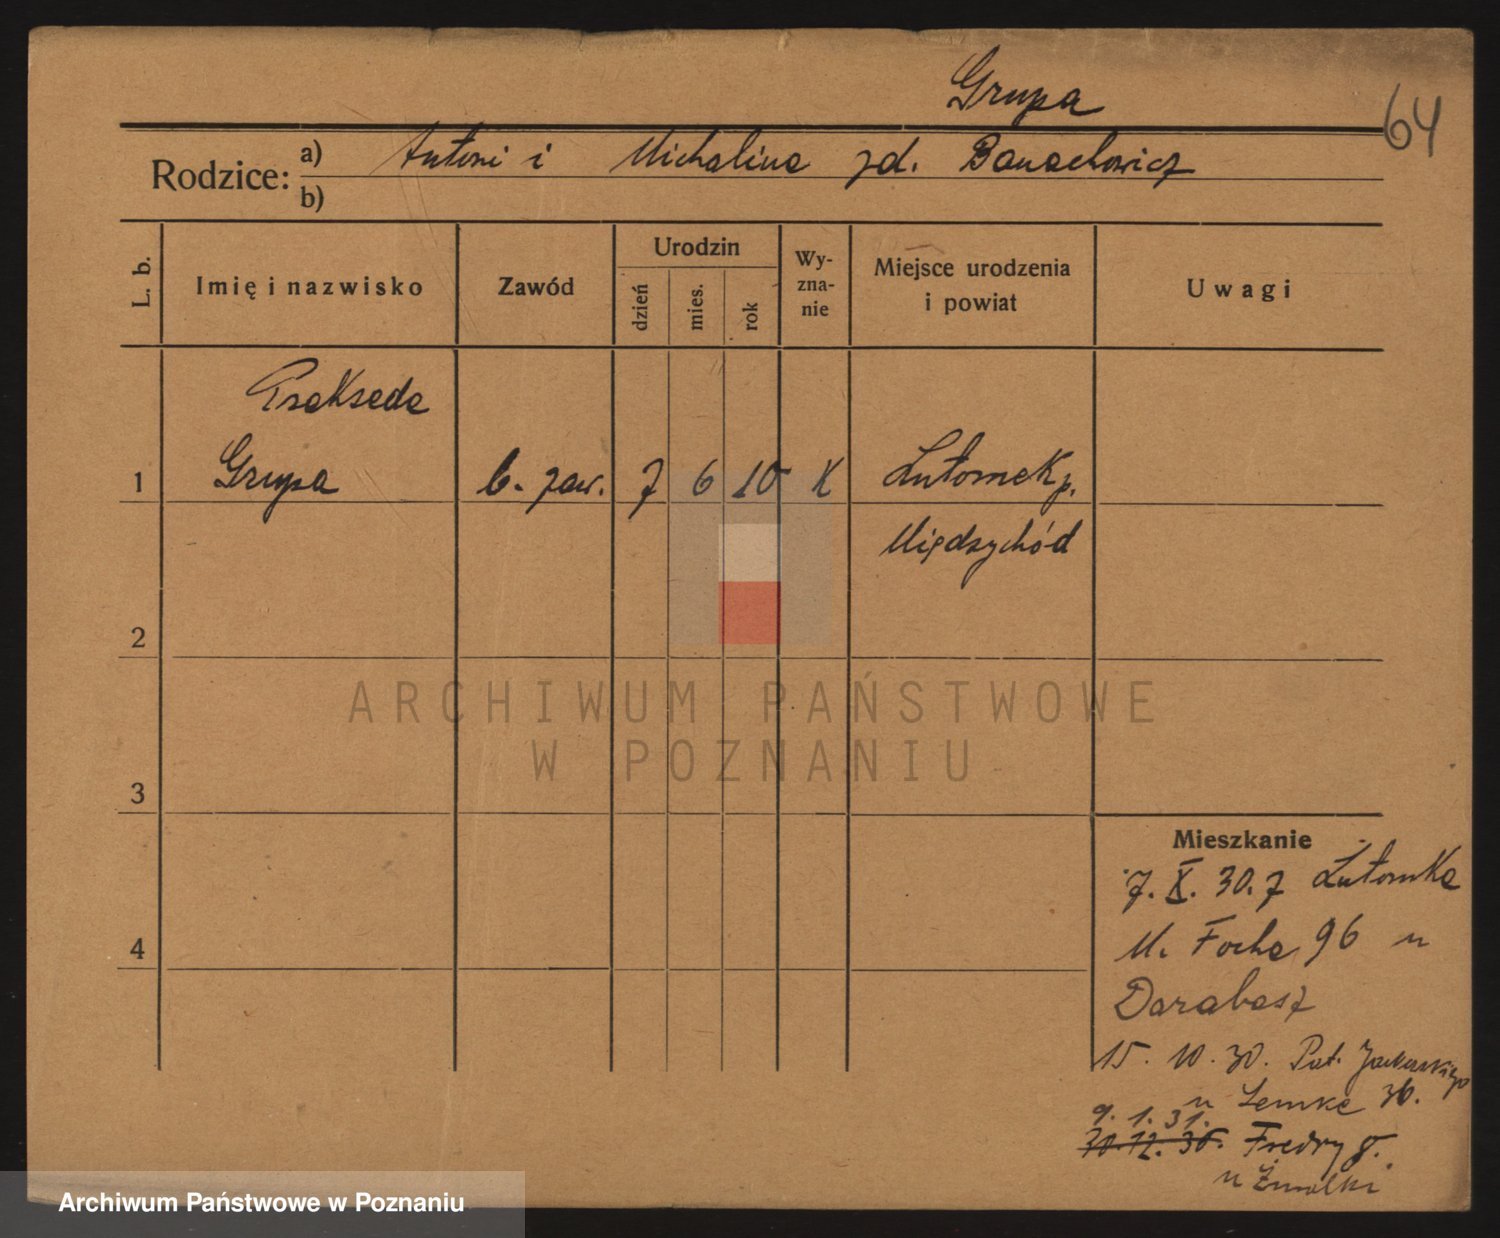 Grupa
64
Rodzice: a) Antoni i Michalina zd. Banachowicz
b)
L. b.
Imię i nazwisko
Zawód
Urodzin
dzień
mies.
rok
Wy-
zna-
nie
Miejsce urodzenia
i powiat
Uwagi
Prakseda
1 Grupa b. zaw. 7 6 10 K Lutomek p.
Międzychód
2
3
4
ARCHIWUM PAŃSTWOWE
W POZNANIU
Mieszkanie
7. X. 30. z Lutomka
M. Focha 96 u
Darabasz
15. 10. 30. Pat. Jackowskiego
u Lemke 36.
9. 1. 31.
30. 12. 30. Fredry 8.
u
Archiwum Państwowe w Poznaniu